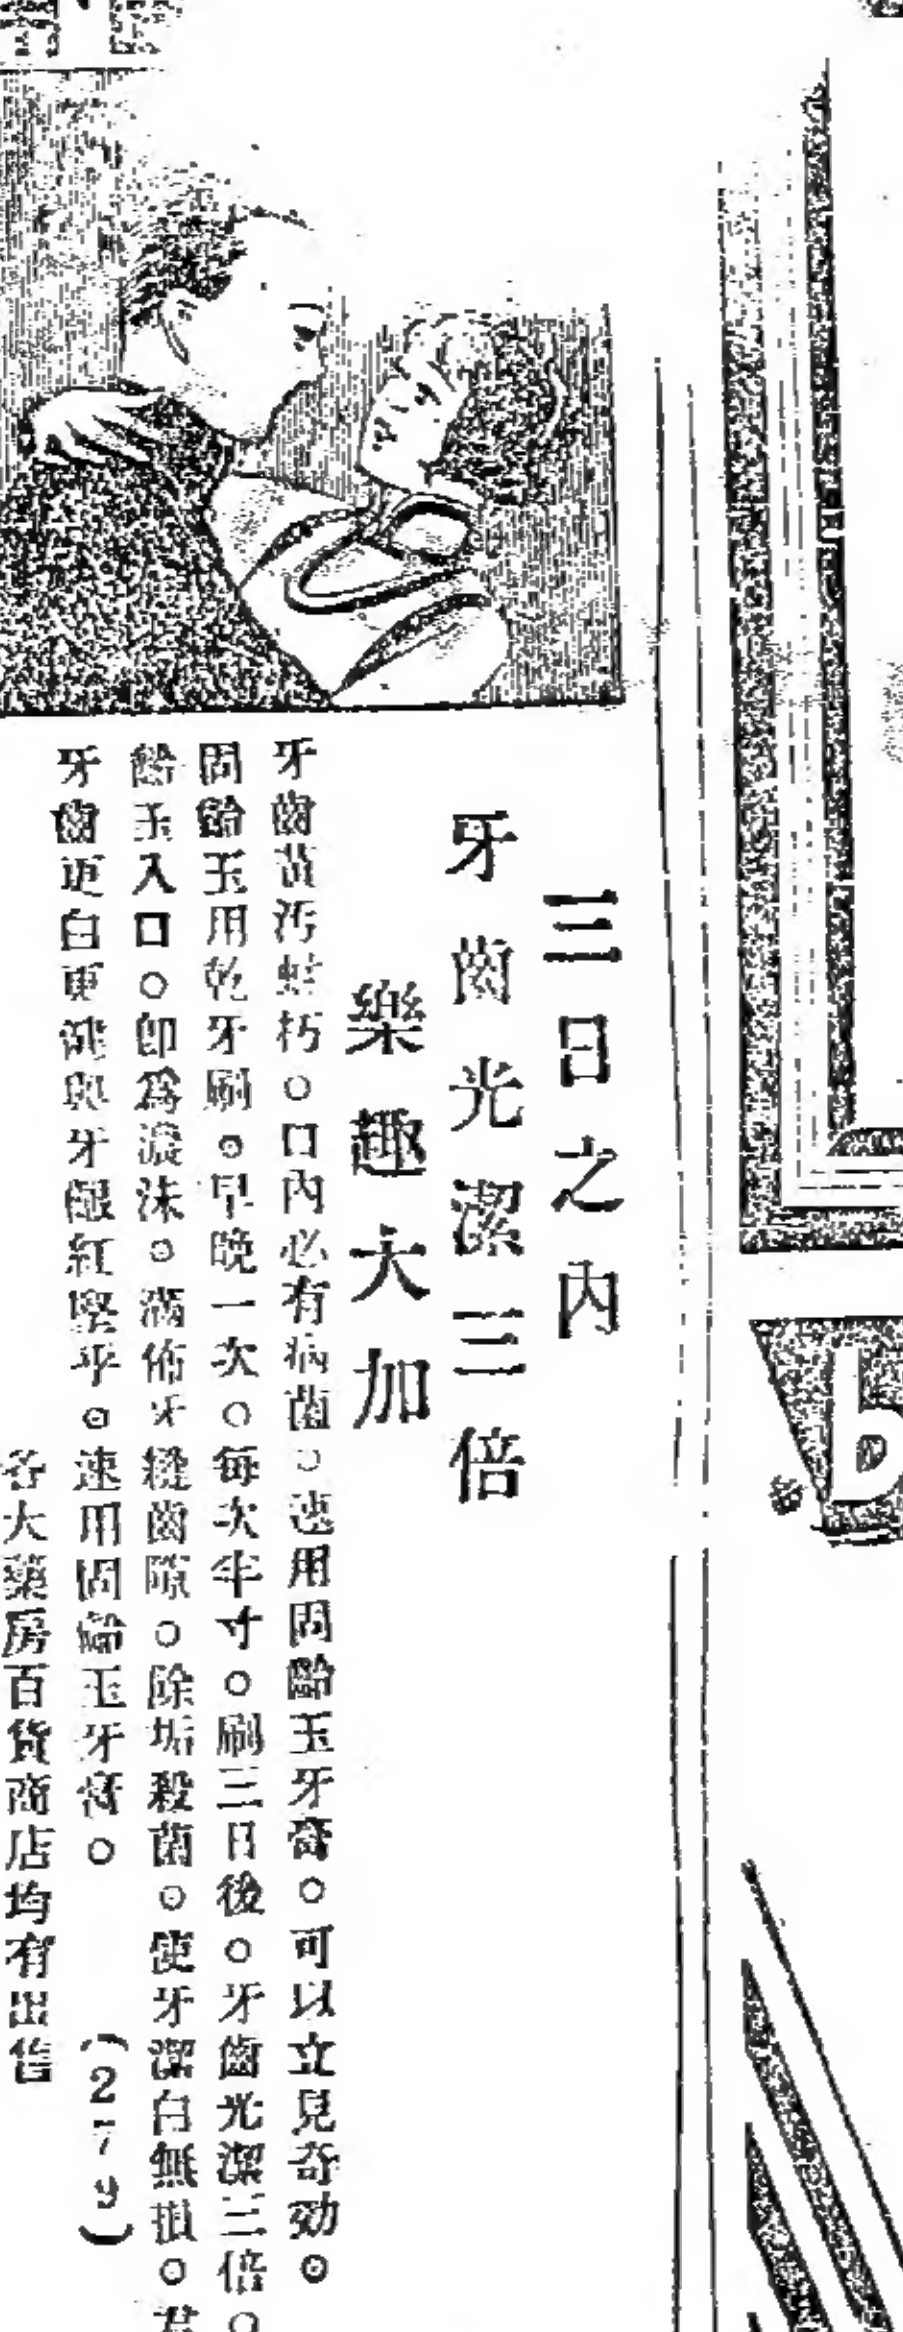 三日之內
牙齒光潔三倍
樂趣大加
牙齒黃汚蛀朽。口內必有病菌。速用固齡玉牙膏。可以立見奇効。
固齡玉用乾牙刷。早晚一次。每次半寸。刷三日後。牙齒光潔三倍。
齡玉入口。卽爲濃沫。滿佈牙縫齒隙。除垢殺菌。使牙潔白無損。君
牙齒更白更健與牙齦紅堅乎。速用固齡玉牙膏。(279)
各大藥房百貨商店均有出售
b